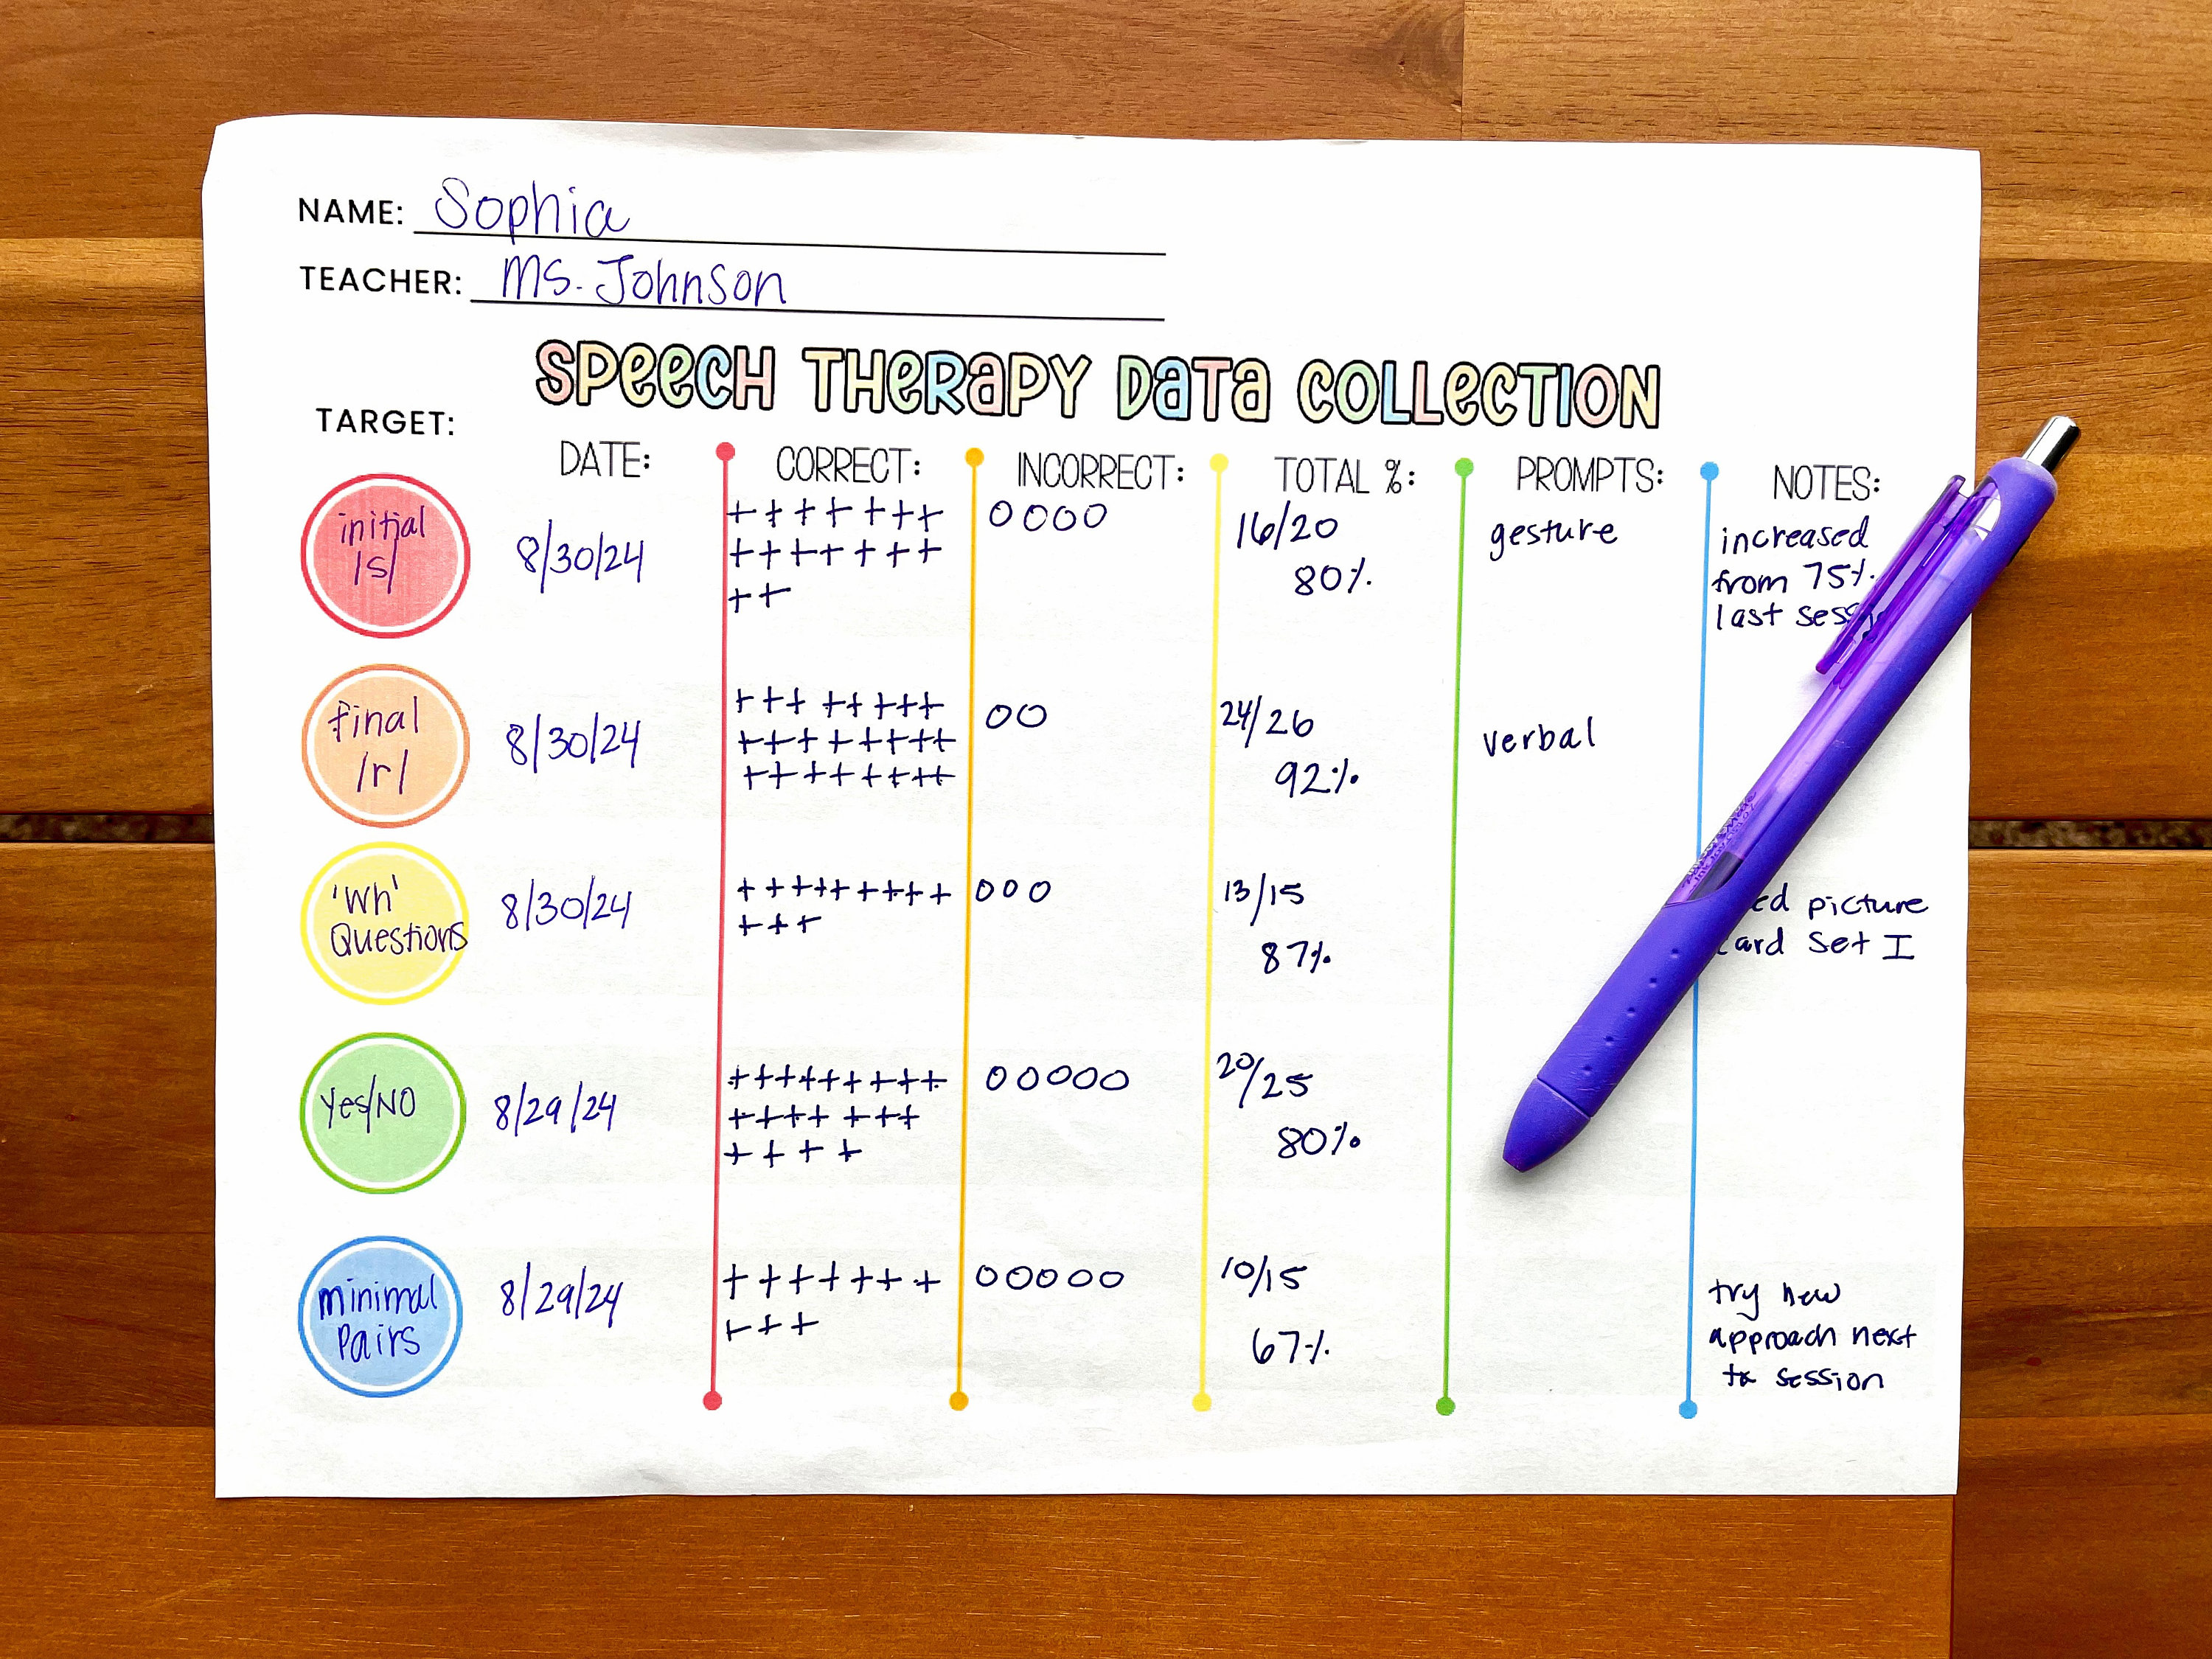 NAME: Sophia
TEACHER: Ms. Johnson
SPEECH THERAPY DATA COLLECTION
TARGET:
DATE: CORRECT: INCORRECT: TOTAL %: PROMPTS: NOTES:
initial /s/
8/30/24
+++++++
+++++++
++
0000
16/20
80%
gesture
increased
from 75%
last
final /r/
8/30/24
++++++++
++++++++
++++++++
00
24/26
92%
verbal
'Wh' Questions
8/30/24
+++++++++
+++
000
13/15
87%
picture
set I
Yes/NO
8/29/24
+++++++++
+++++++
++++
00000
20/25
80%
minimal Pairs
8/29/24
+++++++
+++
00000
10/15
67%
try new
approach next
tx session